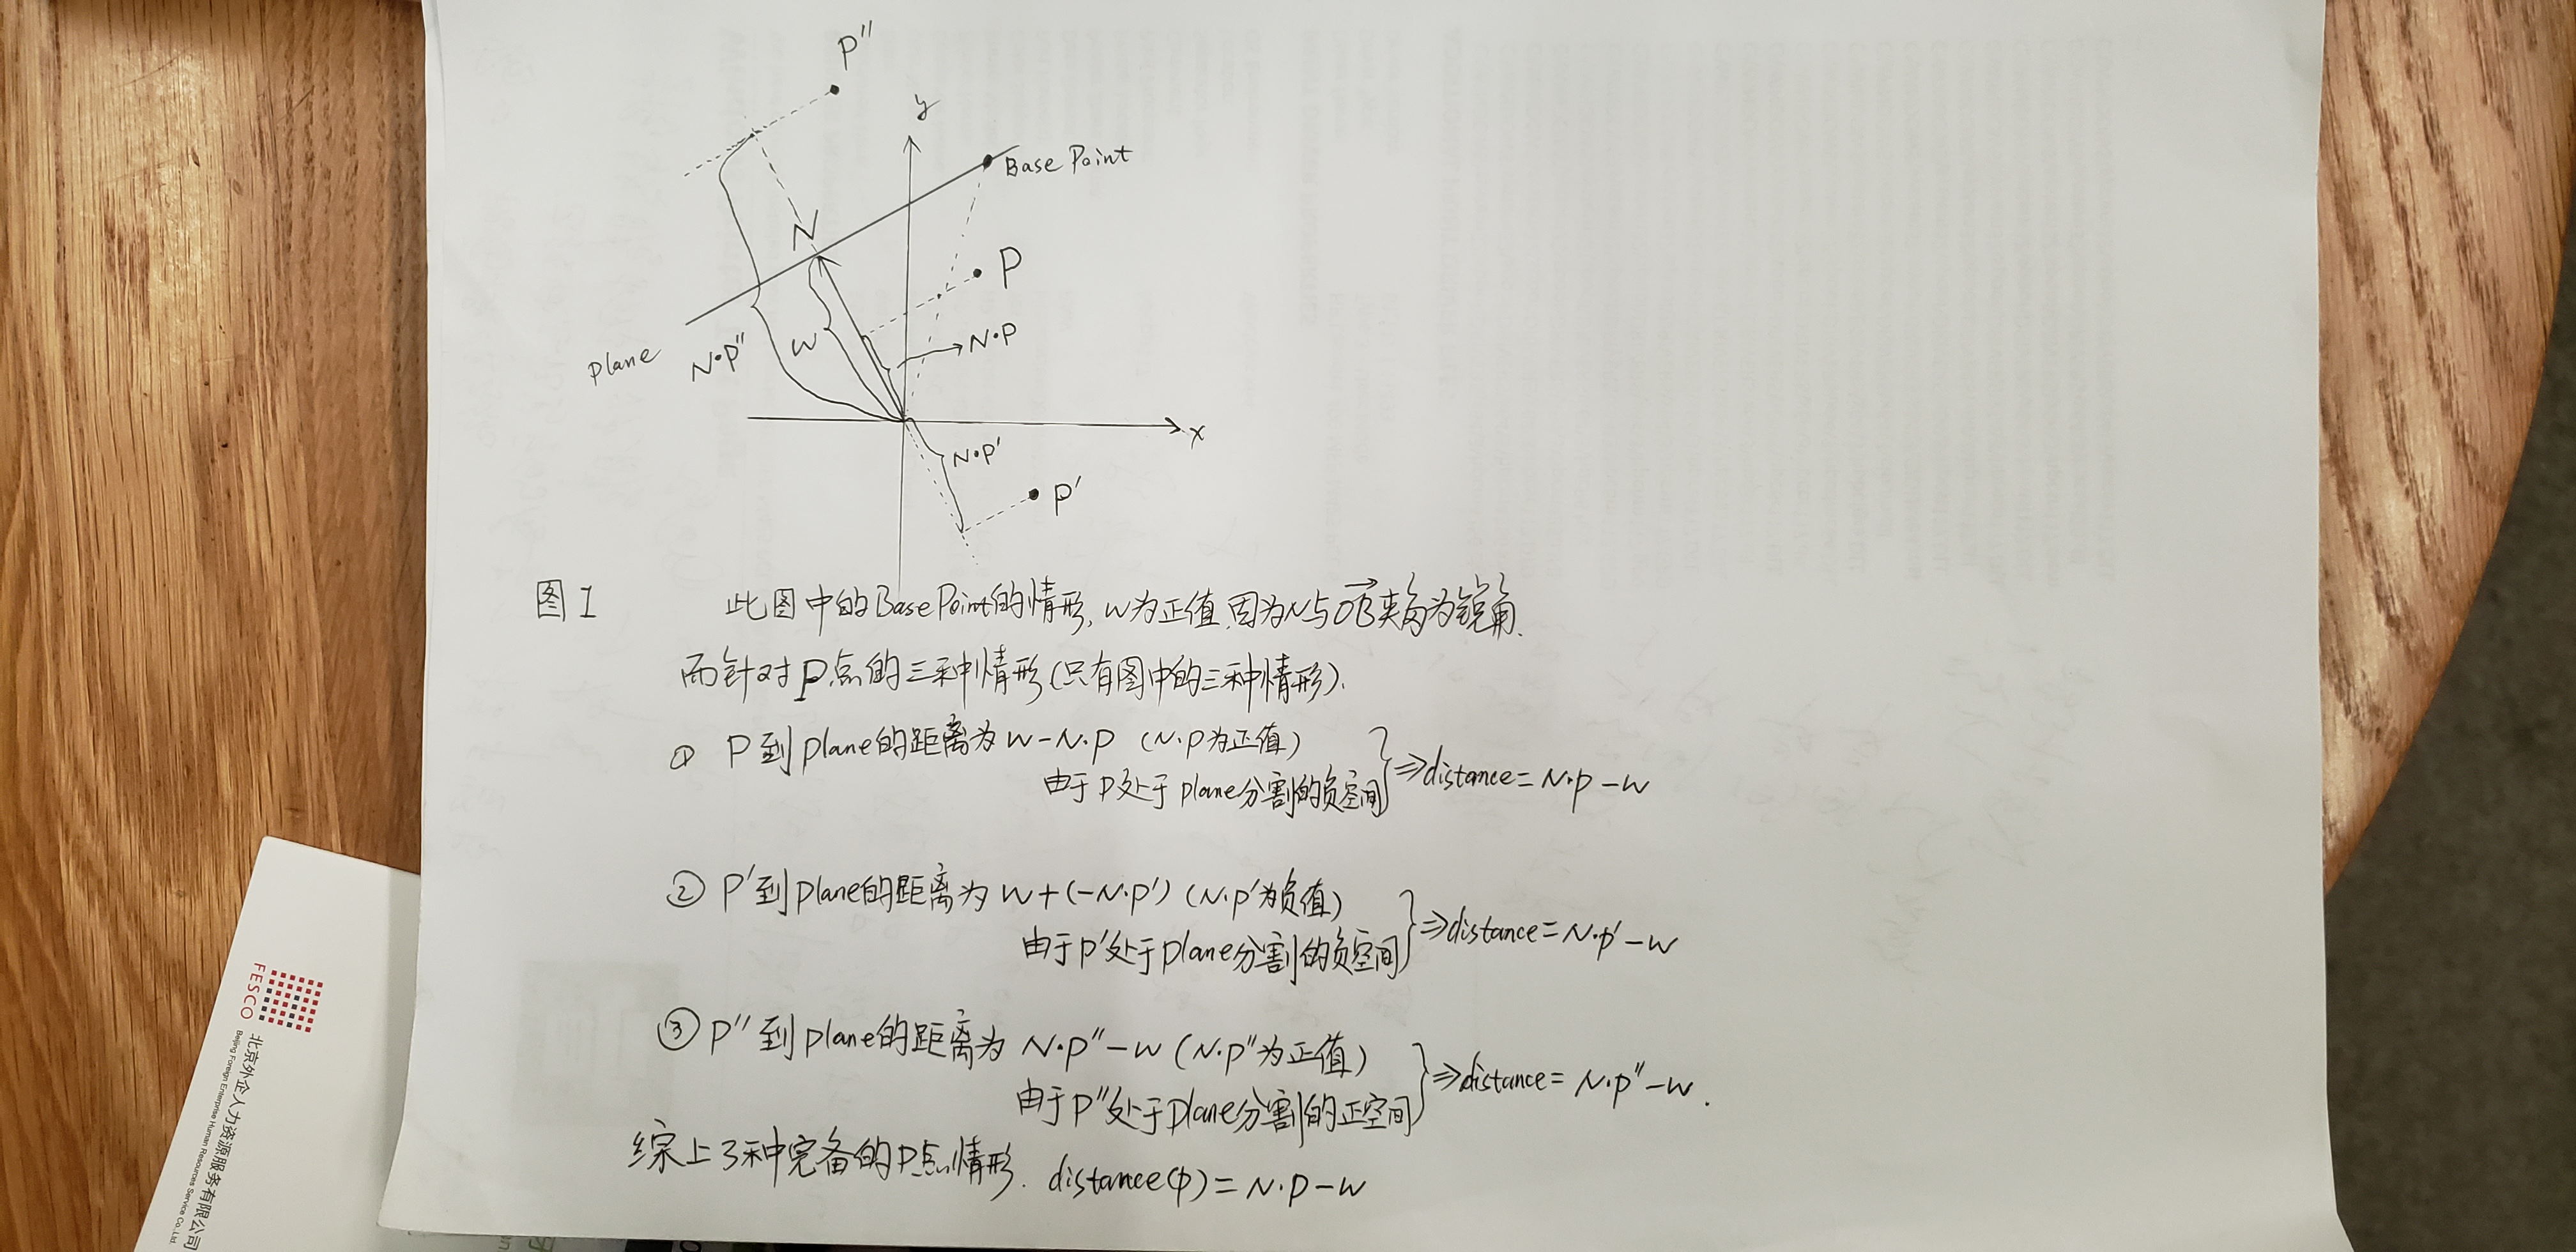 P''
y
Base Point
N
P
N·P
W
Plane
N·P''
x
N·P'
P'
图1
此图中的Base Point的情形, W为正值,因为N与OB夹角为锐角.
而针对P点的三种情形(只有图中的三种情形).
① P到plane的距离为 W-N·P (N·P为正值)
由于P处于plane分割的负空间
⇒distance=N·P-W
② P'到plane的距离为 W+(-N·P') (N·P'为负值)
由于P'处于plane分割的负空间
⇒distance=N·P'-W
③ P''到plane的距离为 N·P''-W (N·P''为正值)
由于P''处于plane分割的正空间
⇒distance=N·P''-W.
综上3种完备的P点情形. distance(P)=N·P-W
FESCO
北京外企人力资源服务有限公司
Beijing Foreign Enterprise Human Resources Service Co.,Ltd.